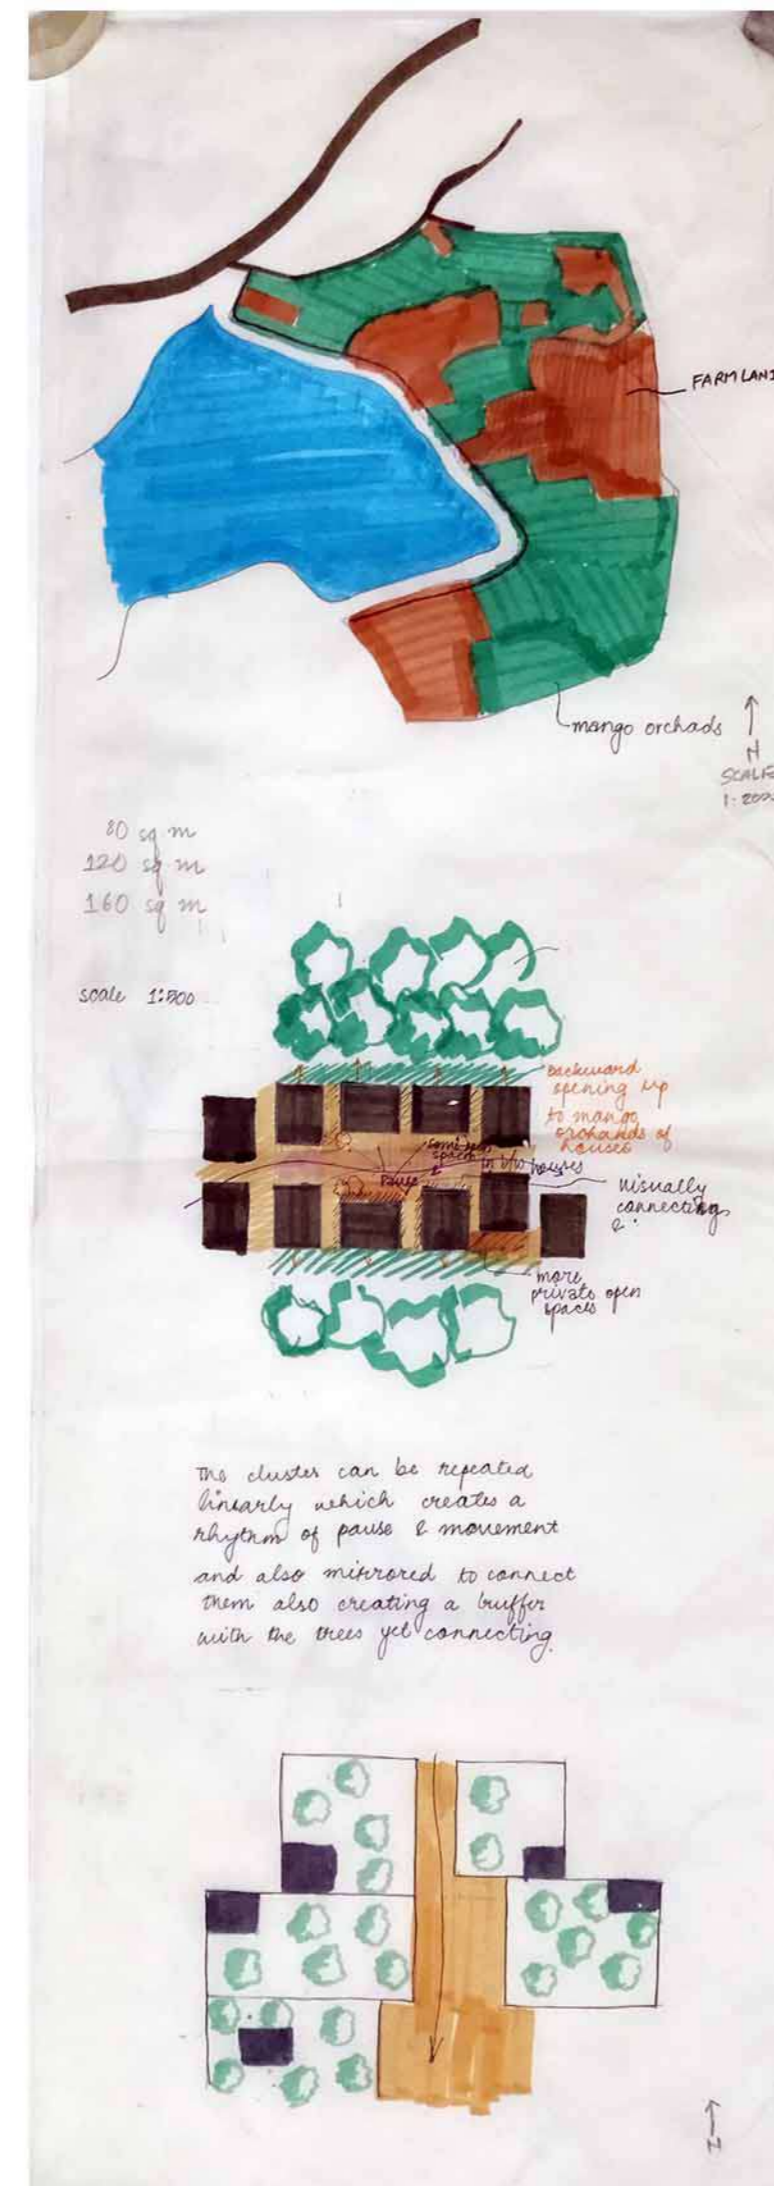 FARMLAND
mango orchads
N
SCALE
1:200
80 sq m
120 sq m
160 sq m
scale 1:500
backward
opening up
to mango
orchands of
houses
semi open
spaces
in b/w houses
Pause
visually
connecting
&
more
private open
spaces
The cluster can be repeated
linearly which creates a
rhythm of pause & movement
and also mirrored to connect
them also creating a buffer
with the trees yet connecting.
N